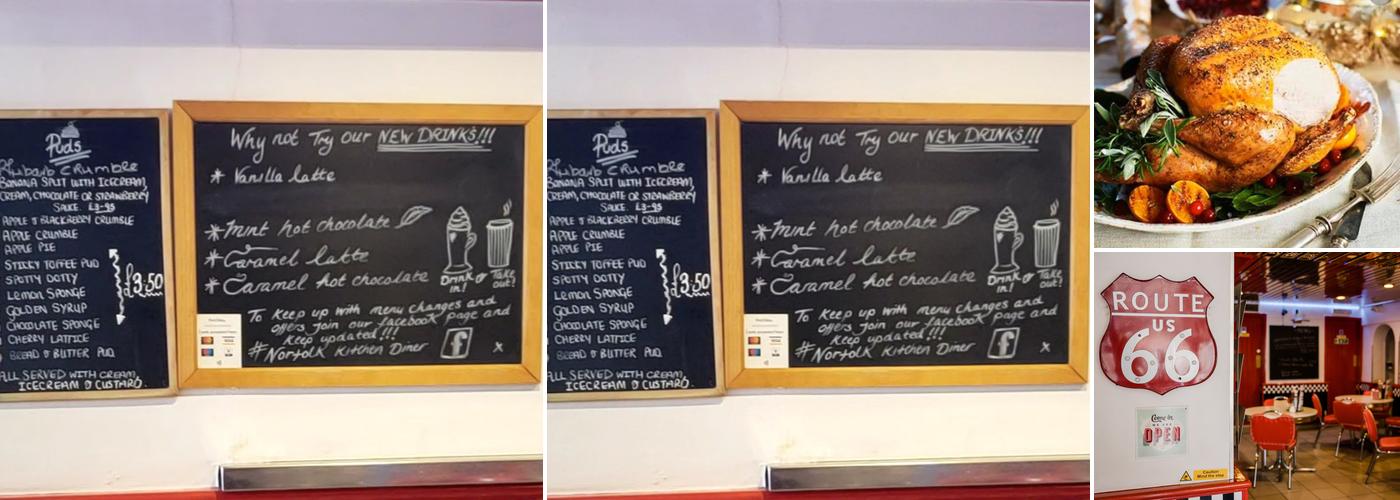 Puds
Rhubarb Crumble
BANANA SPLIT WITH ICECREAM,
CREAM, CHOCOLATE OR STRAWBERRY
SAUCE. £3-95
APPLE & BLACKBERRY CRUMBLE
APPLE CRUMBLE
APPLE PIE
STICKY TOFFEE PUD
SPOTTY DOTTY
LEMON SPONGE
GOLDEN SYRUP
CHOCOLATE SPONGE
CHERRY LATTICE
BREAD & BUTTER PUD
£3.50
ALL SERVED WITH CREAM,
ICECREAM & CUSTARD.
Why not Try our NEW DRINKS!!!
* Vanilla latte
* Mint hot chocolate
* Caramel latte
* Caramel hot chocolate
Drink in!
or
Take out!
To keep up with menu changes and
offers join our facebook page and
keep updated!!!
#Norfolk Kitchen Diner
f
x
VISA
Puds
Rhubarb Crumble
BANANA SPLIT WITH ICECREAM,
CREAM, CHOCOLATE OR STRAWBERRY
SAUCE. £3-95
APPLE & BLACKBERRY CRUMBLE
APPLE CRUMBLE
APPLE PIE
STICKY TOFFEE PUD
SPOTTY DOTTY
LEMON SPONGE
GOLDEN SYRUP
CHOCOLATE SPONGE
CHERRY LATTICE
BREAD & BUTTER PUD
£3.50
ALL SERVED WITH CREAM,
ICECREAM & CUSTARD.
Why not Try our NEW DRINKS!!!
* Vanilla latte
* Mint hot chocolate
* Caramel latte
* Caramel hot chocolate
Drink in!
or
Take out!
To keep up with menu changes and
offers join our facebook page and
keep updated!!!
#Norfolk Kitchen Diner
f
x
VISA
ROUTE
US
66
Come in
WE ARE
OPEN
Caution
Mind the step